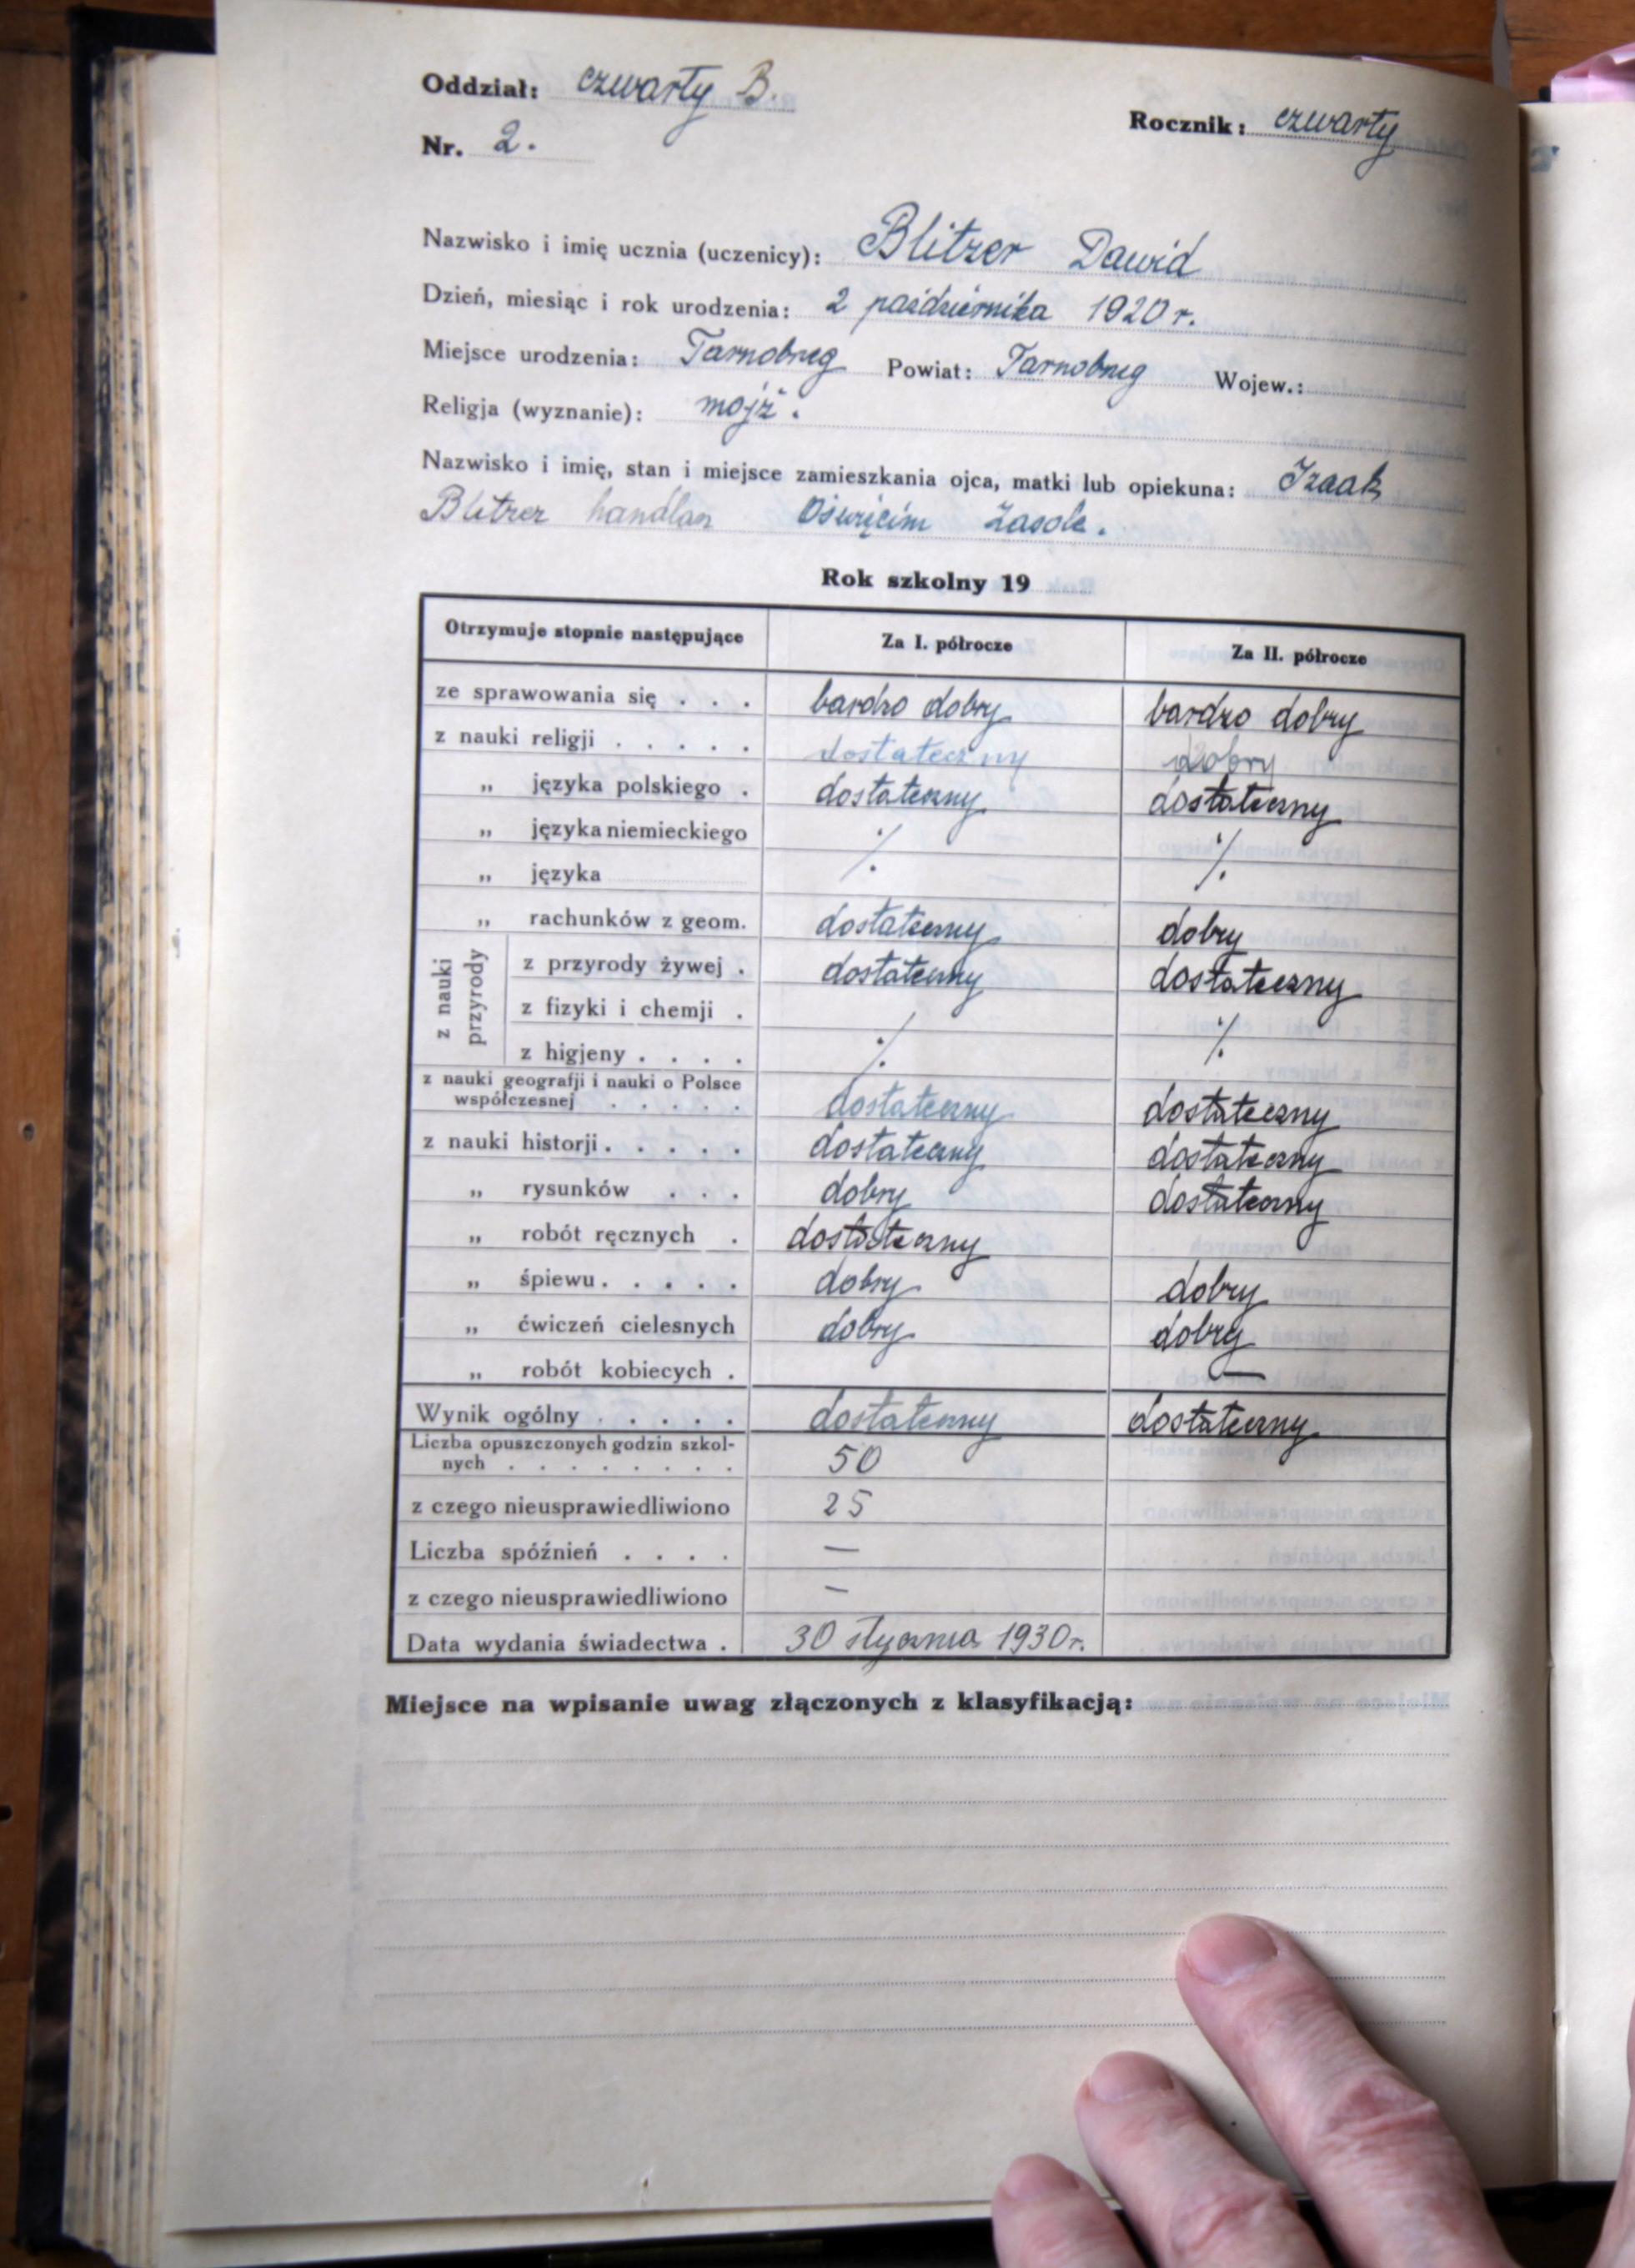 Oddział: czwarty B.
Rocznik: czwarty
Nr. 2.
Nazwisko i imię ucznia (uczenicy): Blitzer Dawid
Dzień, miesiąc i rok urodzenia: 2 października 1920 r.
Miejsce urodzenia: Tarnobrzeg Powiat: Tarnobrzeg Wojew.:
Religja (wyznanie): mojż.
Nazwisko i imię, stan i miejsce zamieszkania ojca, matki lub opiekuna: Izaak
Blitzer handlarz Oświęcim Zasole.
Rok szkolny 19
Otrzymuje stopnie następujące Za I. półrocze Za II. półrocze
ze sprawowania się . . . bardzo dobry bardzo dobry
z nauki religji . . . . . dostateczny dobry
„ języka polskiego . dostateczny dostateczny
„ języka niemieckiego ⁒ ⁒
„ języka
„ rachunków z geom. dostateczny dobry
z nauki przyrody
z przyrody żywej . dostateczny dostateczny
z fizyki i chemji . ⁒ ⁒
z higjeny . . . .
z nauki geografji i nauki o Polsce
współczesnej . . . . . dostateczny dostateczny
z nauki historji . . . . . dostateczny dostateczny
„ rysunków . . . dobry dostateczny
„ robót ręcznych . dostateczny
„ śpiewu . . . . . dobry dobry
„ ćwiczeń cielesnych dobry dobry
„ robót kobiecych . —
Wynik ogólny . . . . . dostateczny dostateczny
Liczba opuszczonych godzin szkol-
nych . . . . . . . . 50
z czego nieusprawiedliwiono 25
Liczba spóźnień . . . . —
z czego nieusprawiedliwiono —
Data wydania świadectwa . 30 stycznia 1930 r.
Miejsce na wpisanie uwag złączonych z klasyfikacją: